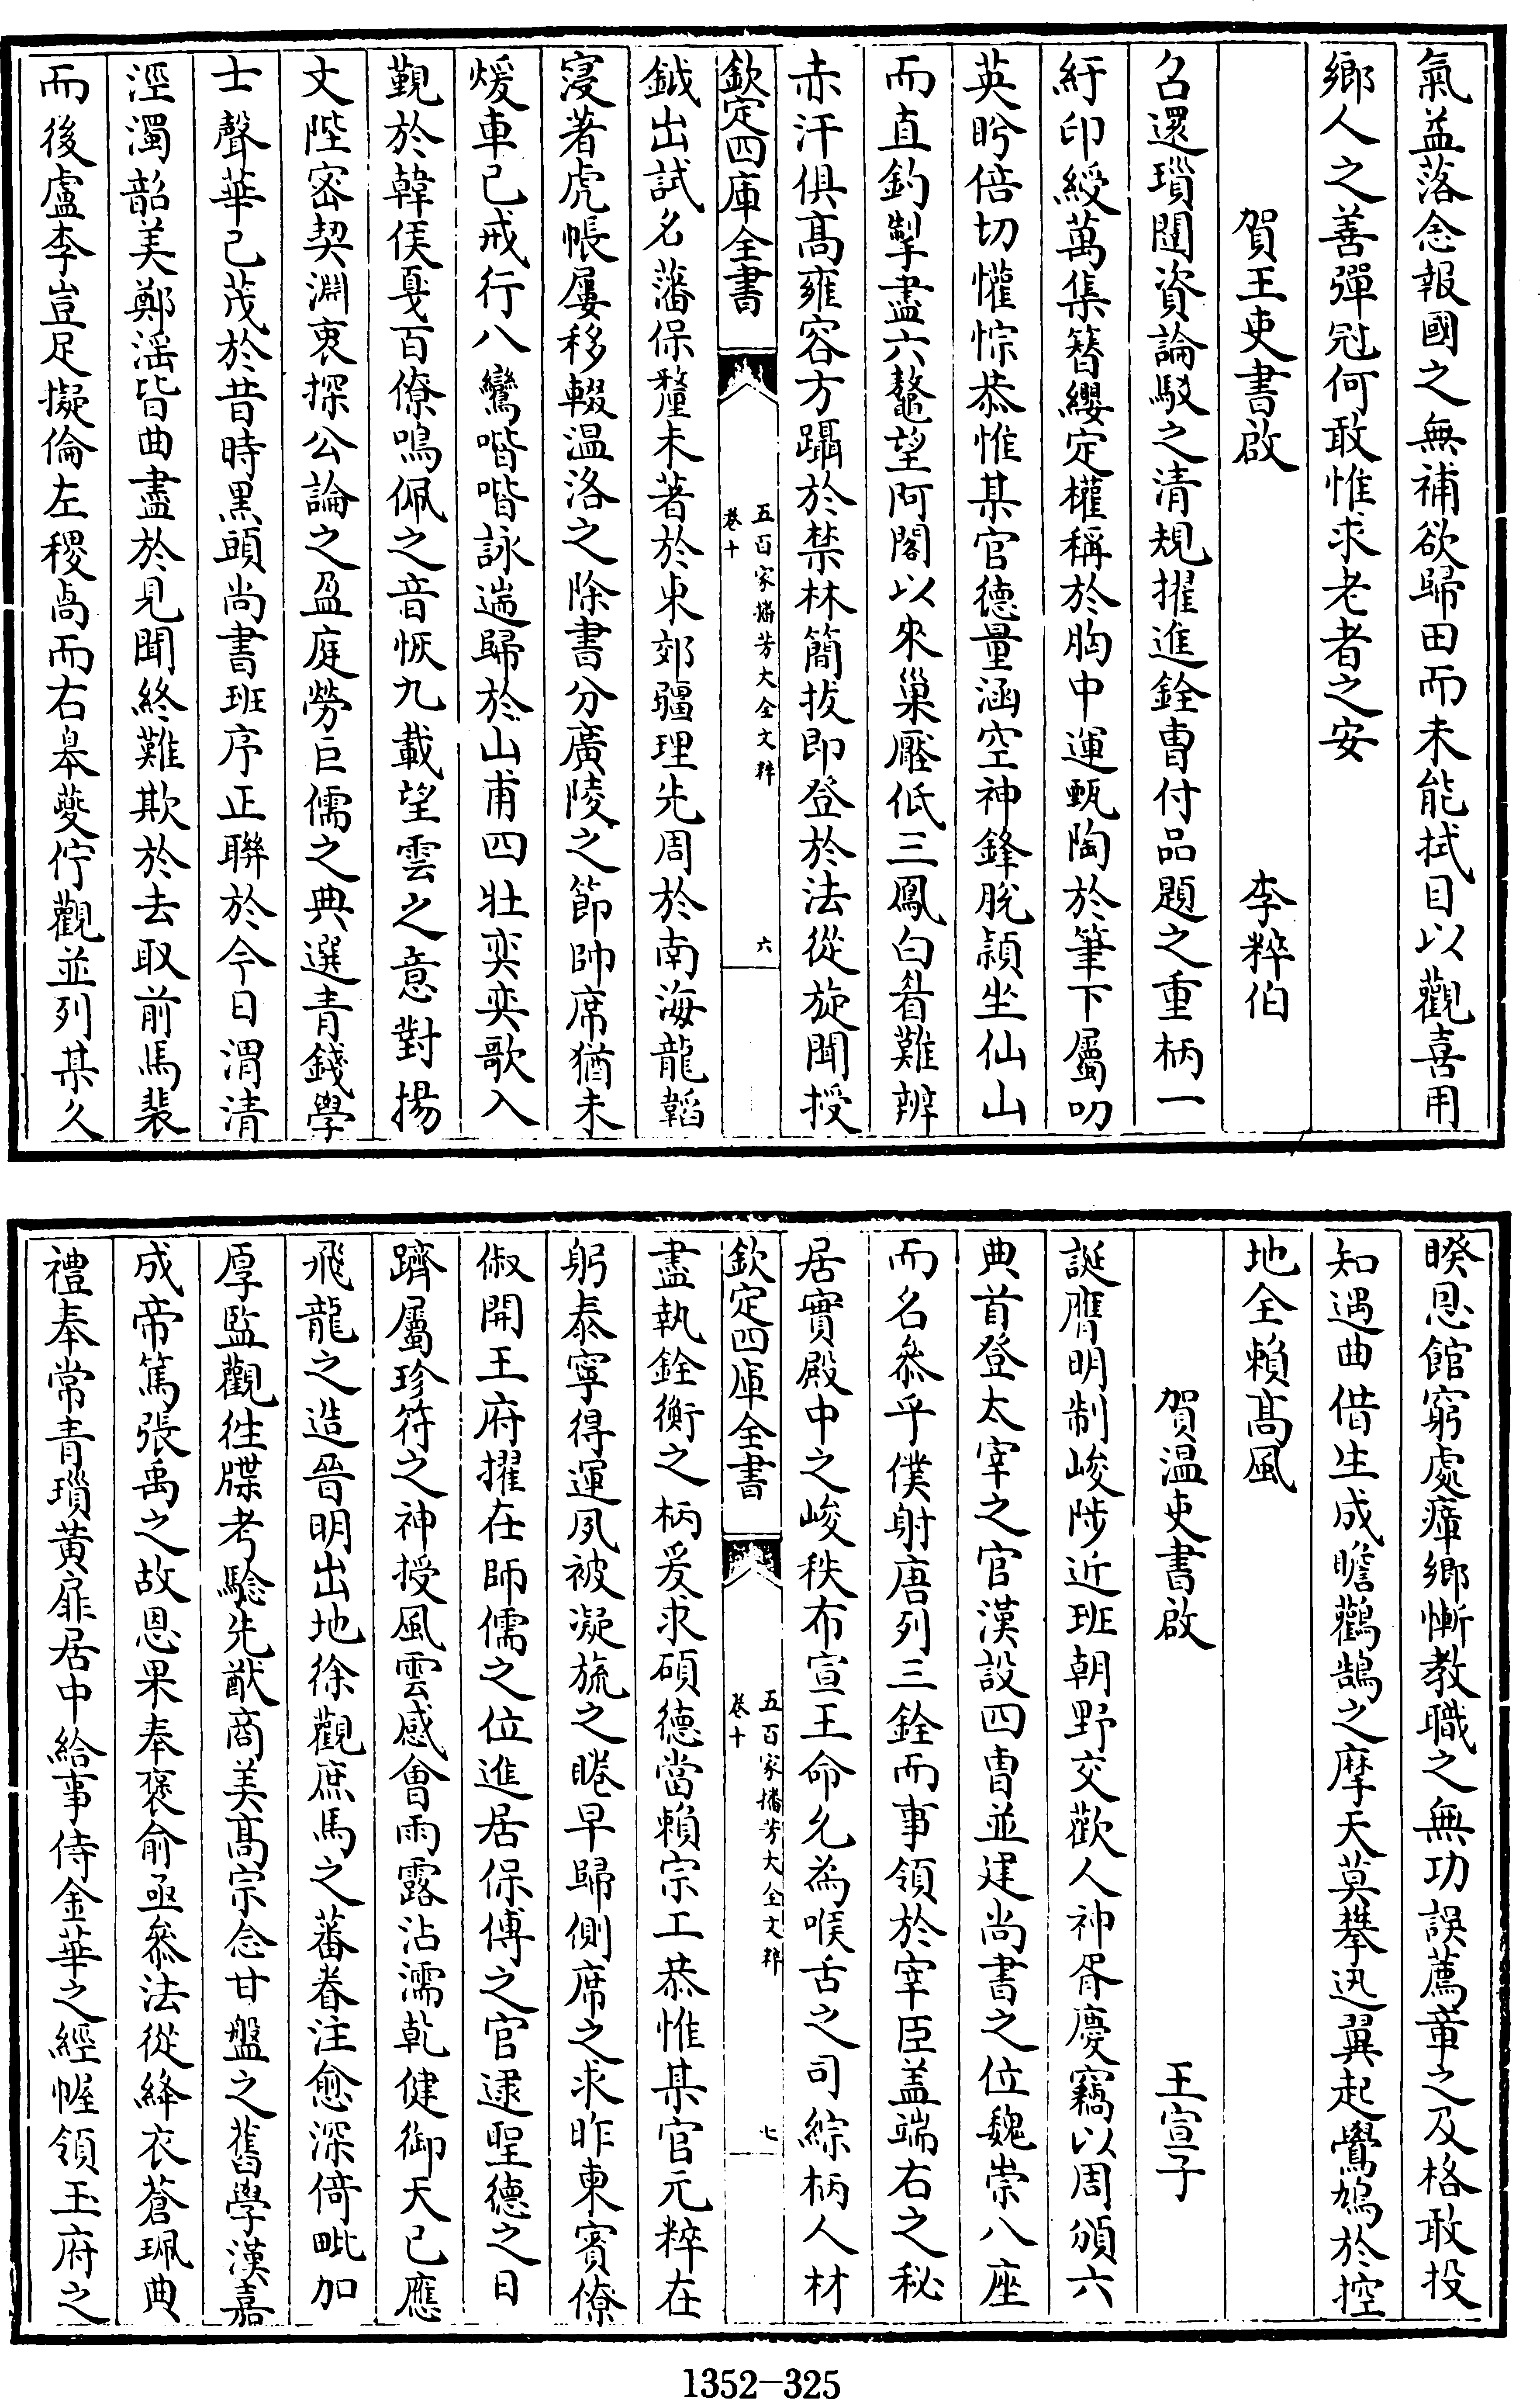 氣益落念報國之無補欲歸田而未能拭目以觀喜用
鄉人之善彈冠何敢惟求老者之安
賀王吏書啟 李粹伯
召還瑣闥資論駁之清規擢進銓曹付品題之重柄一
紆印綬萬集簪纓定權稱於胸中運甄陶於筆下屬叨
英盻倍切懽悰恭惟某官德量涵空神鋒脫頴坐仙山
而直釣掣盡六鼇望阿閣以來巢壓低三鳳白眉難辨
赤汗俱高雍容方躡於禁林簡拔即登於法從旋聞授
欽定四庫全書 五百家播芳大全文粹 卷十 六
鉞出試名藩保釐未著於東郊疆理先周於南海龍韜
寖著虎帳屢移輟温洛之除書分廣陵之節帥席猶未
煖車已戒行八鸞喈喈詠遄歸於山甫四壯奕奕歌入
覲於韓侯戛百僚鳴佩之音恢九載望雲之意對揚
文陛密契淵衷探公論之盈庭勞巨儒之典選青錢學
士聲華已茂於昔時黒頭尚書班序正聯於今日渭清
涇濁韶美鄭滛皆曲盡於見聞終難欺於去取前馬裴
而後盧李豈足擬倫左稷卨而右皋夔佇觀並列某久
睽恩館窮處瘴鄉慚教職之無功誤薦章之及格敢投
知遇曲借生成瞻鸛鵠之摩天莫攀迅翼起鷽鳩於控
地全賴髙風
賀温吏書啟 王宣子
誕膺明制峻陟近班朝野交歡人神胥慶竊以周頒六
典首登太宰之官漢設四曹並建尚書之位魏崇八座
而名叅乎僕射唐列三銓而事領於宰臣盖端右之秘
居實殿中之峻秩布宣王命允為喉舌之司綜柄人材
欽定四庫全書 五百家播芳大全文粹 卷十 七
盡執銓衡之柄爰求碩德當賴宗工恭惟某官元粹在
躬泰寧得運夙被凝旒之睠早歸側席之求昨東賓僚
俶開王府擢在師儒之位進居保傅之官逮聖德之日
躋屬珍符之神授風雲感會雨露沾濡乾健御天已應
飛龍之造晉明出地徐觀庶馬之蕃眷注愈深倚毗加
厚監觀徃牒考驗先猷商美髙宗念甘盤之舊學漢嘉
成帝篤張禹之故恩果奉褒俞亟叅法從絳衣蒼珮典
禮奉常青瑣黃扉居中給事侍金華之經幄領玉府之
1352-325